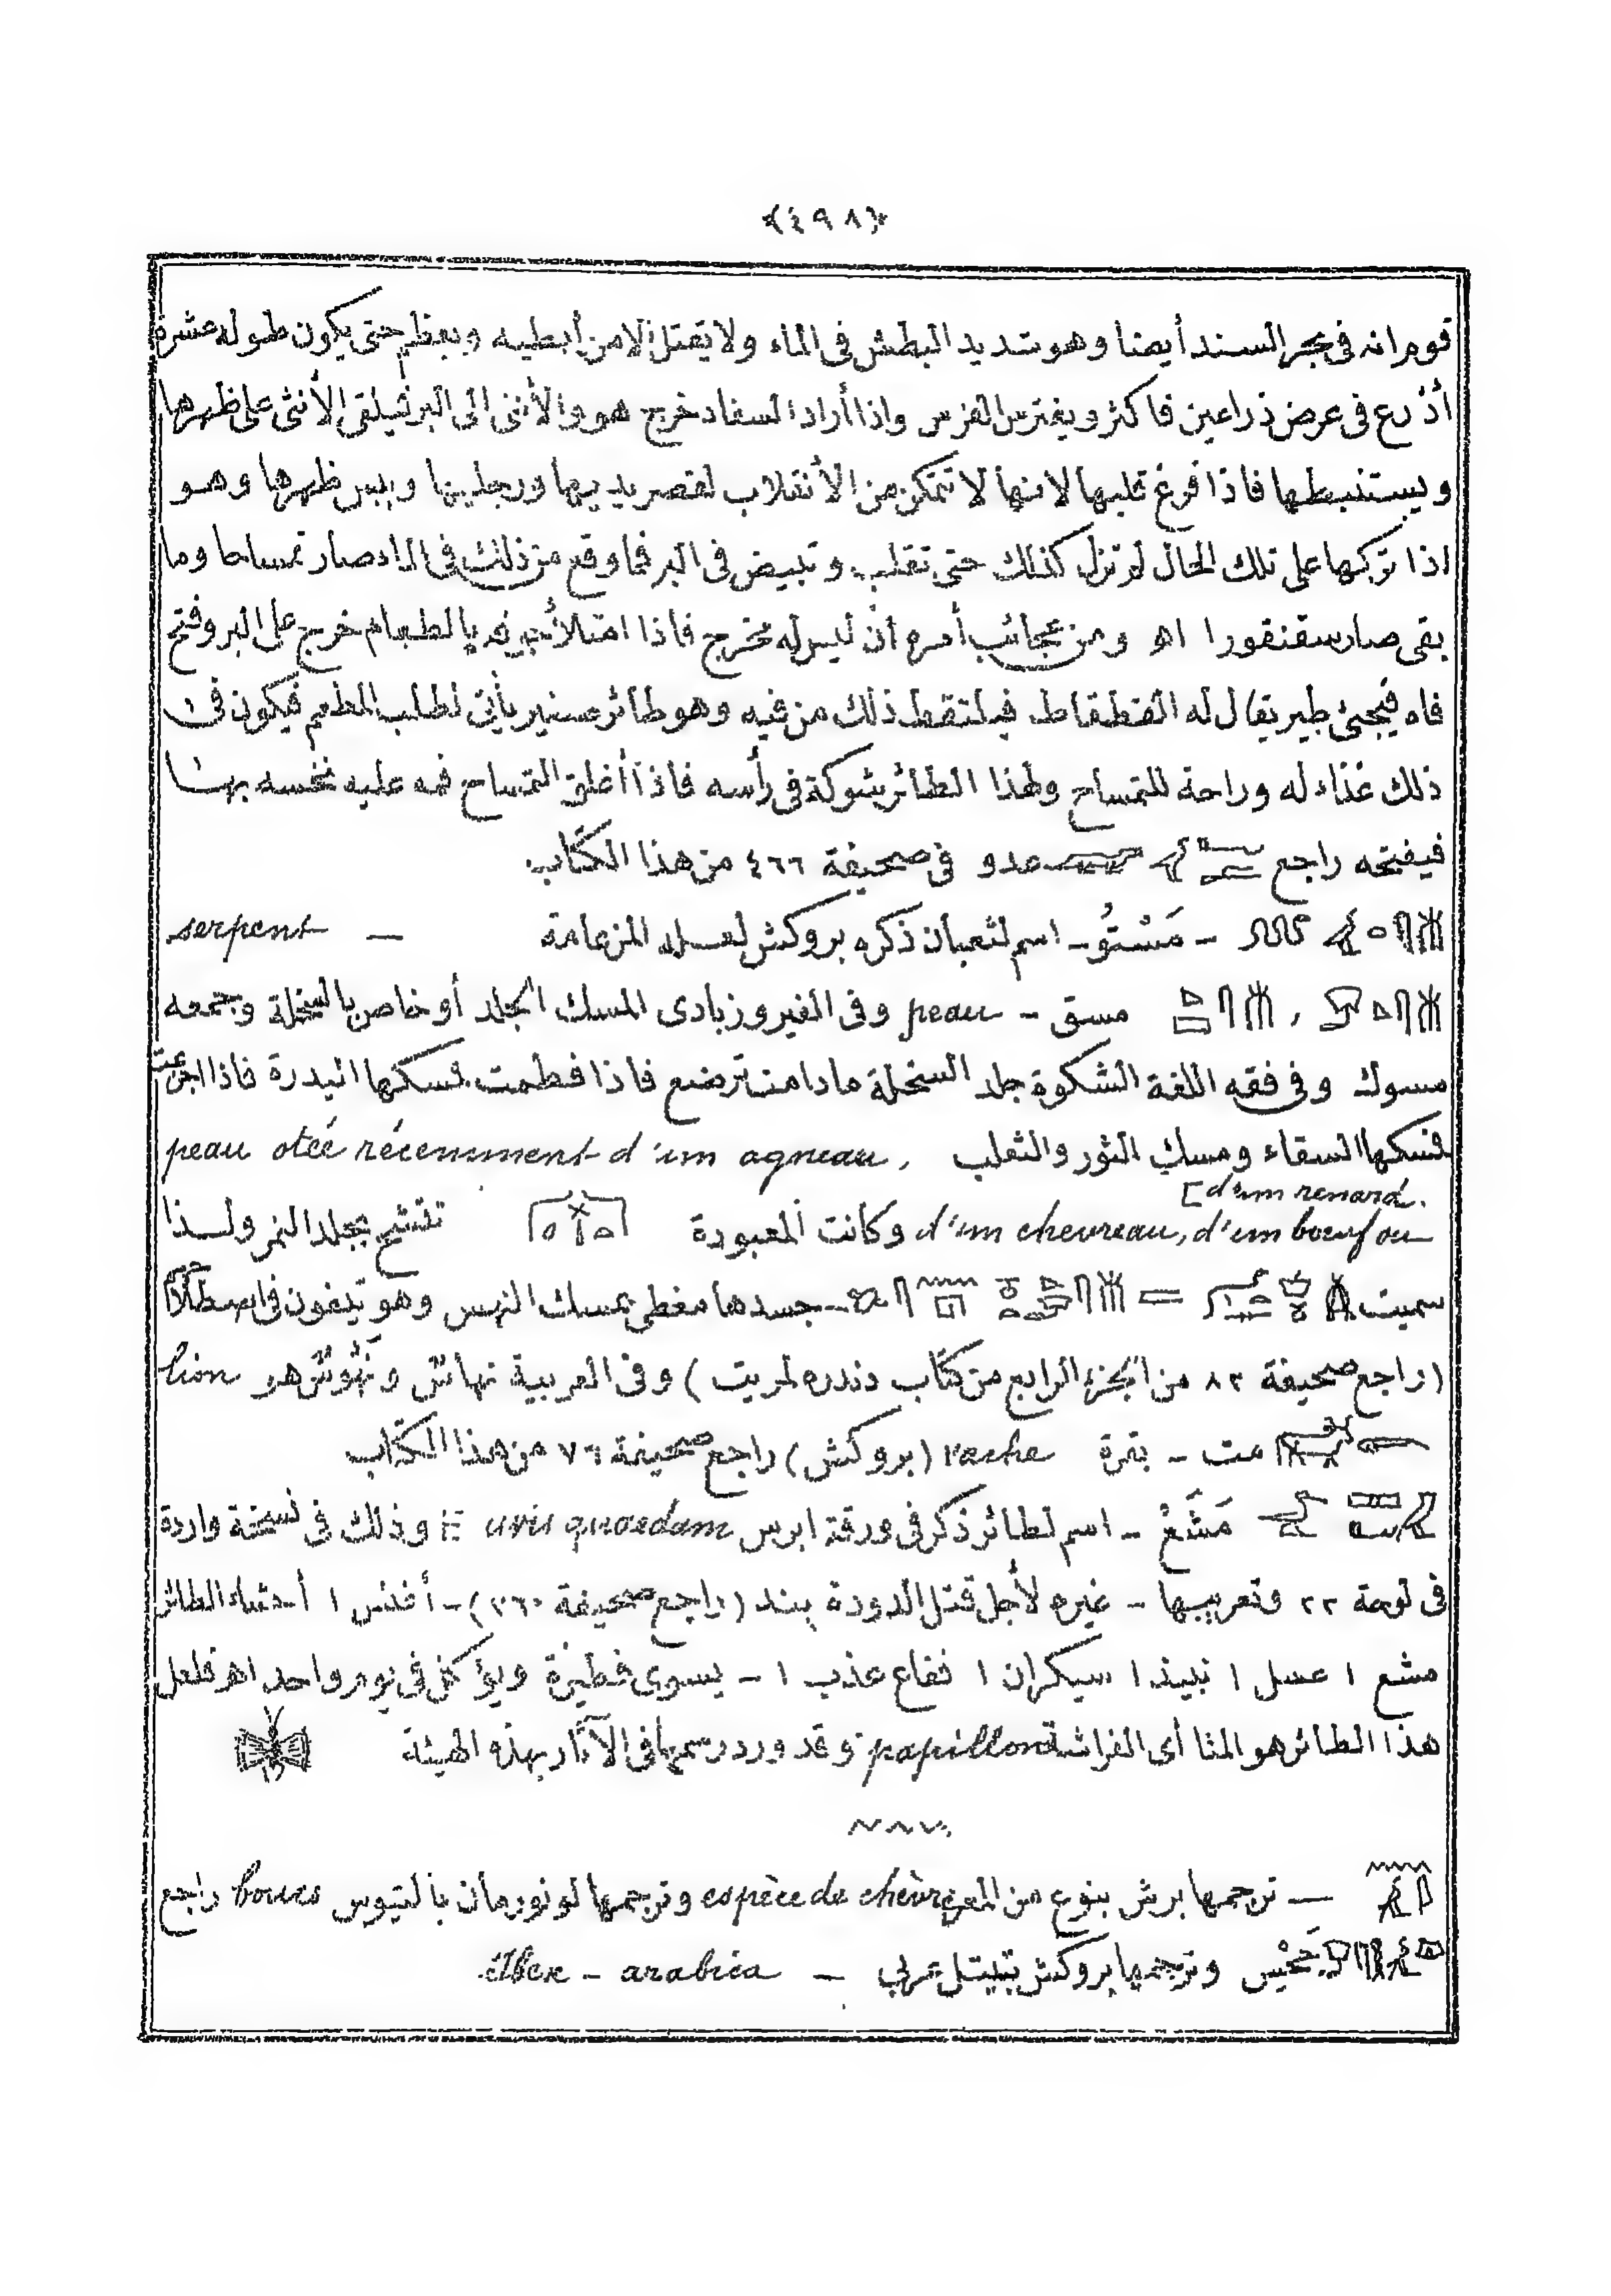 ﴿٤٩٨﴾
قوم انه فى بحر السند أيضا وهو شديد البطش فى الماء ولا يقتل الا من أبطيه ويعظم حتى يكون طوله عشرة
أذرع فى عرض ذراعين فاكثر ويفترس الفرس واذا أراد السفاد خرج هو والأنثى الى البر فيلقى الأنثى على ظهرها
ويستنبطها فاذا فرغ قلبها لانها لا تتمكن من الأنقلاب لقصر يديها ورجليها ويبس ظهرها وهو
اذا تركها على تلك الحال لم تزل كذلك حتى تقلب وتبيض فى البر فما وقع من ذلك فى الماء صار تمساحا وما
بقى صار سقنقورا اهـ ومن عجائب أمره أن ليس له مخرج فاذا امتلأ جوفه بالطعام خرج على البر وفتح
فاه فيجئ طير يقال له القطقاط فيلتقط ذلك من فيه وهو طائر صغير يأتى لطلب المطعم فيكون فى
ذلك غذاء له وراحة للتمساح ولهذا الطائر شوكة فى رأسه فاذا أغلق التمساح فمه عليه نخسه بها
فيفتحه راجع عدو فى صحيفة ٤٦٦ من هذا الكتاب
– مَسْتُو – اسم لثعبان ذكره بروكش لعله المزعامة – serpent
مسق – peau وفى الفيروزبادى المسك الجلد أو خاص بالسخلة وجمعه
مسوك وفى فقه اللغة الشكوة جلد السخلة ما دامت ترضع فاذا فطمت فمسكها البدرة فاذا اجذعت
فمسكها السقاء ومسك الثور والثعلب peau otée récemment d'un agneau,
[d'un renard.
d'un chevreau, d'un boeuf ou وكانت المعبودة تتشح بجلد النمر ولذا
سميت = – جسدها مغطى بمسك النهس وهو تيفون فى اصطلاحهم
(راجع صحيفة ٨٣ من الجزء الرابع من كتاب دندره لمريت) وفى العربية نهاس ونهوس هر lion
مت – بقرة vache (بروكش) راجع صحيفة ٧٦ من هذا الكتاب
مَشَعْ – اسم لطائر ذكر فى ورقة ابرس avis quaedam وذلك فى نسخة واردة
فى لوحة ٢٢ وتعريبها – غيره لأجل قتل الدودة بند (راجع صحيفة ٣٦٠) – أفنس ١ أحشاء الطائر
مشع ١ عسل ١ نبيذ ١ سيكران ١ فقاع عذب ١ – يسوى فطيرة ويؤكل فى يوم واحد اهـ فلعل
هذا الطائر هو المثا أى الفراشة papillon وقد ورد رسمها فى الآثار بهذه الهيئة
— ترجمها برش بنوع من المعز espèce de chèvre وترجمها لونورمان بالتيوس boucs راجع
وترجمها بروكش بتيتل عربى – ibex – arabica